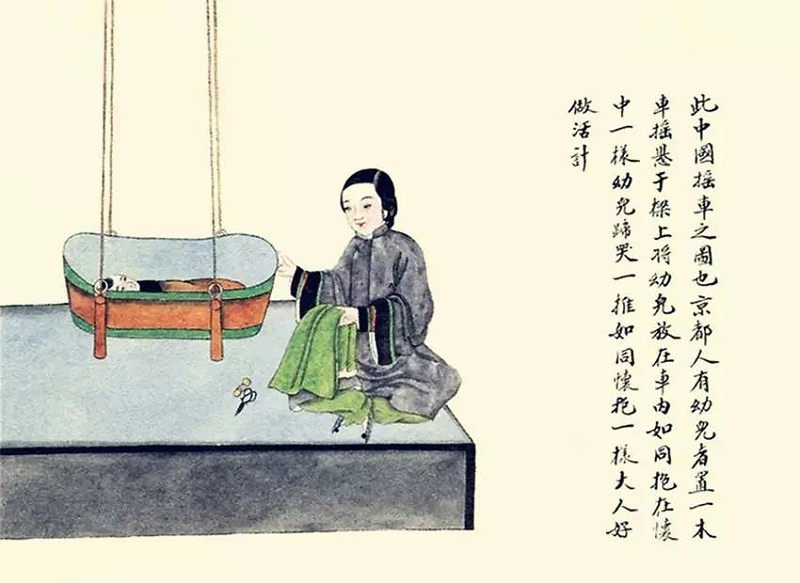 此中國搖車之圖也京都人有幼兒者置一木
車搖懸于樑上將幼兒放在車內如同抱在懷
中一樣幼兒蹄哭一推如同懷抱一樣大人好
做活計